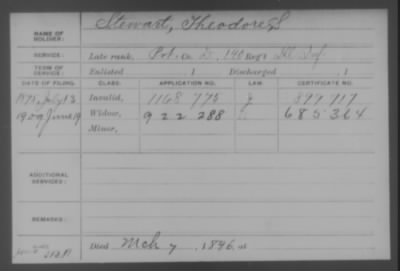 Stewart, Theodore S
NAME OF SOLDIER:
SERVICE: Late rank, Pvt. Co. D, 140 Reg't Ill Inf
TERM OF SERVICE: Enlisted , 1 Discharged , 1
DATE OF FILING. CLASS. APPLICATION NO. LAW. CERTIFICATE NO.
July 13 Invalid, 1168 775 J 897 717
1909 June 19 Widow, 922 288 685364
Minor,
ADDITIONAL SERVICES:
REMARKS:
Died Mch 7, 1896, at